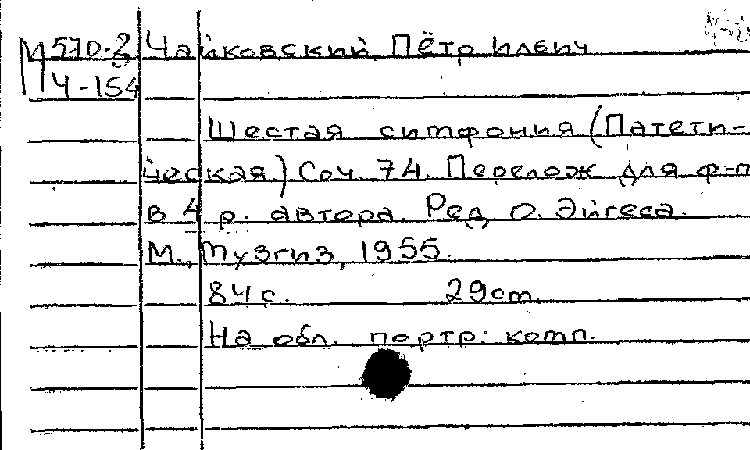 М 570-2 Чайковский, Пётр Ильич
Ч-154
Шестая симфония (Патети-
ческая) Соч. 74. Перелож для ф-п
в 4 р. автора. Ред О. Эйгеса.
М., Музгиз, 1955.
84 с. 29 cm.
На обл. портр. комп.